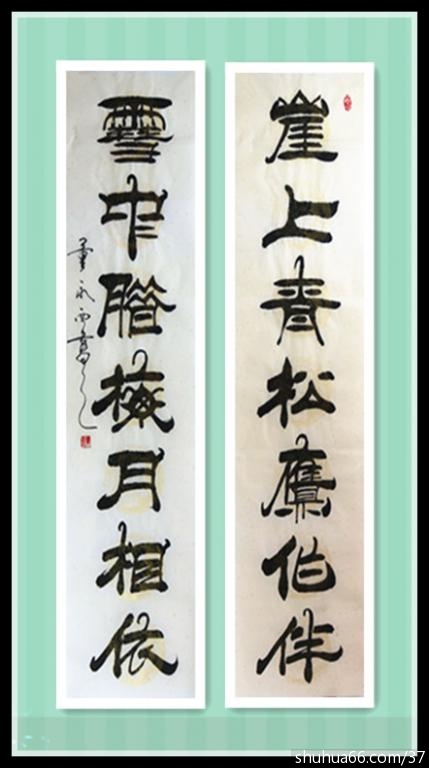 崖上青松鷹作伴
雪中腊梅月相依
shuhua66.com/37